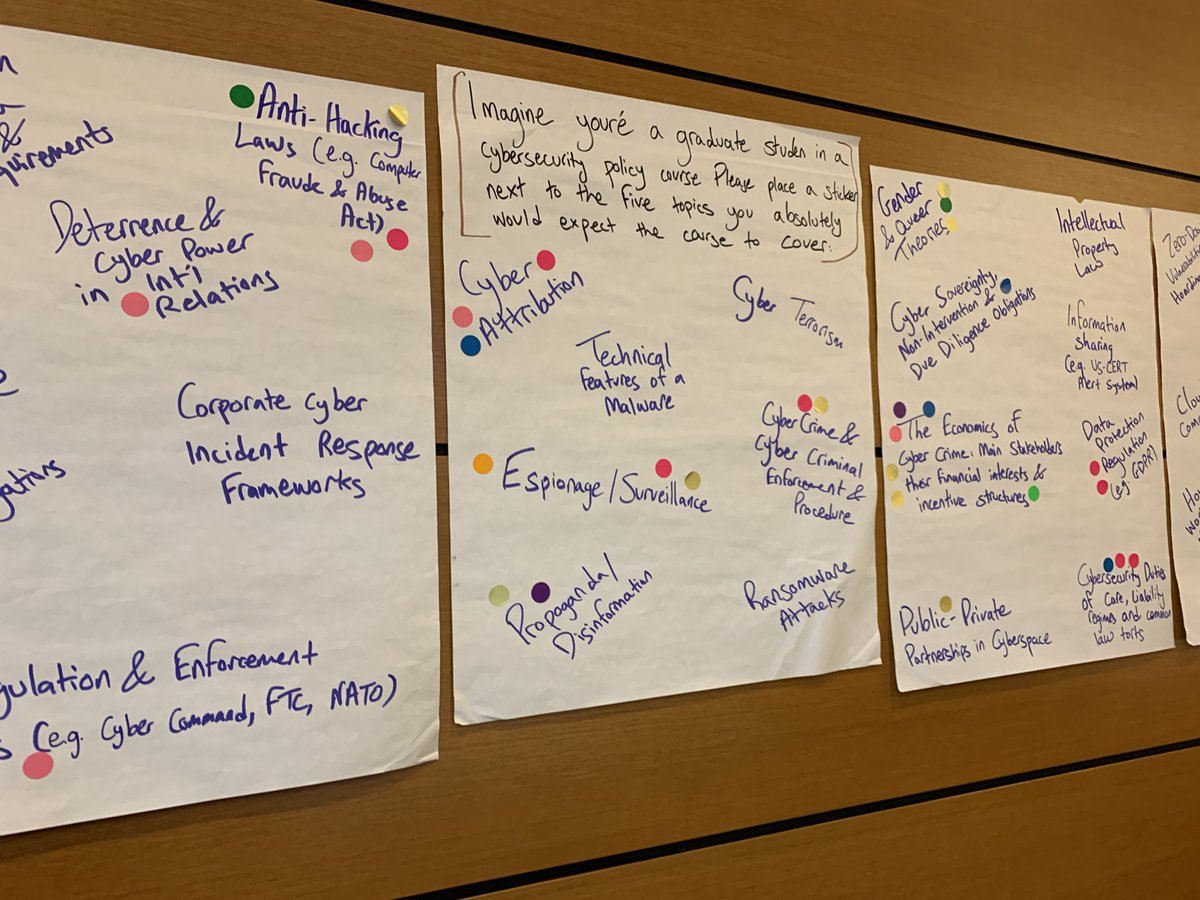 &
Anti-Hacking
Laws (e.g. Computer
Fraude & Abuse
Act)
Deterrence &
Cyber Power
in Int'l
Relations
Corporate Cyber
Incident Response
Frameworks
& Enforcement
(e.g. Cyber Command, FTC, NATO)
Imagine youré a graduate studen in a
cybersecurity policy course Please place a sticker
next to the five topics you absolutely
would expect the course to cover:
Cyber
Attribution
Cyber Terrorism
Technical
Features of a
Malware
CyberCrime &
Cyber Criminal
Enforcement &
Procedure
Espionage/Surveillance
Propoganda/
Disinformation
Ransomware
Attacks
Gender
& Queer
Theories
Intellectual
Property
Law
Cyber Sovereignty,
Non-Intervention &
Due Diligence Obligations
Information
Sharing
(e.g. US-CERT
Alert System)
The Economics of
Cyber Crime: Main Stakeholders
their financial interests &
incentive structures
Data
Protection
Regulation
(e.g. GDPR)
Public-Private
Partnerships in Cyberspace
Cybersecurity Duties
of Care, Liability
regimes and common
law torts